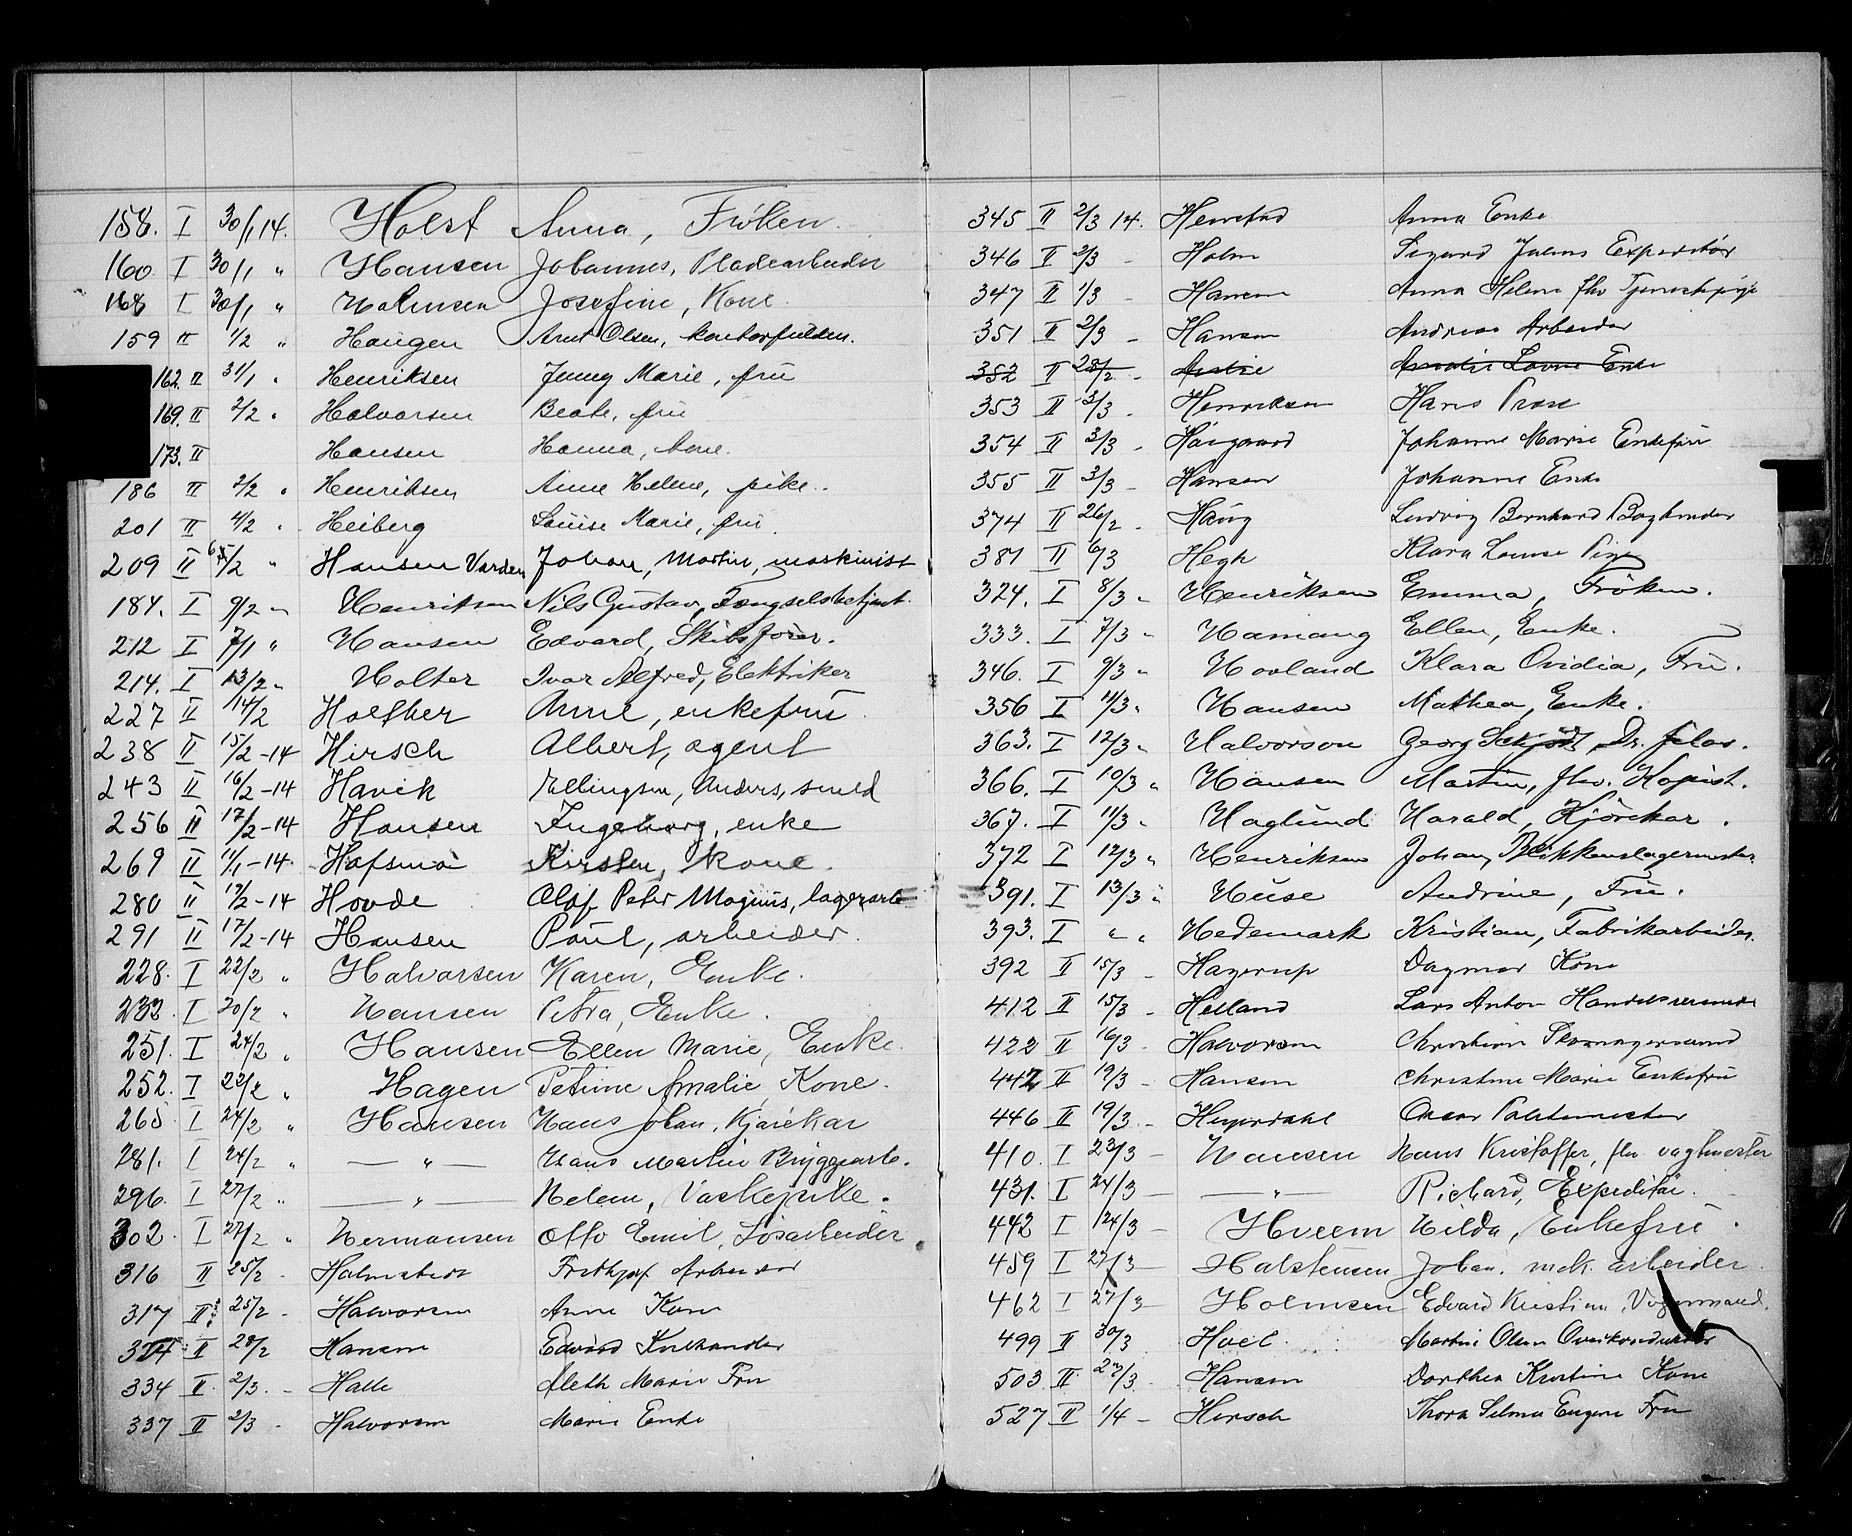 158. I 30/1 14. Holst Anna, Fröken.
160. I 30/1 " Hansen Johannes, Pladearbeider
168 I 30/1 " Holmsen Josefine, Kone.
159 II 1/2 " Haugen Arnt Olsen, kontorfuldm.
162. II 31/1 " Henriksen Jenny Marie, fru
169. II 2/2 " Halvorsen Beate, fru
173. II Hansen Hanna, kone.
186 II 2/2 " Henriksen Anne Helene, pike.
201 II 4/2 " Heiberg Louise Marie, fru.
209 II 6/2 " Hansen Varden Johan, Martin, maskinist
184. I 9/2 " Henriksen Nils Gustav, Fængselsbetjent.
212 I 7/1 " Hansen Edvard, Skibsfører.
214. I 13/2 " Holter Ivar Alfred, Elektriker
227 II 14/2 Anne, enkefru
238 II 15/2 -14 Hirsch Albert, agent
243 II 16/2 -14 Havik Ellingsen, Anders, smed
256 II 17/2 -14 Hansen Ingeborg, enke
269 II 11/1 -14. Hafsmo Kirsten, kone.
280 II 17/2 -14 Hovde Olaf Peter Magnus, lagerarb
291 II 17/2 -14 Hansen Paul, arbeider.
228. I 22/2 " Halvorsen Karen, Enke.
233. I 20/2 " Hansen Petra, Enke.
251. I 24/2 " Hansen Ellen Marie, Enke.
252. I 22/2 " Hagen Petrine Amalie, Kone.
265 I 24/2 " Hansen Hans Johan, Kjørekar
281. I 24/2 " — " — Hans Martin Bryggearb.
296. I 27/2 " — " — Helene, Vaskepike.
302. I 27/2 " Hermansen Otto Emil, Løsarbeider
316 II 25/2 - Halmstedt Frithjof Arbeider
317 II 25/2 - Halvorsen Anne Kone
324 II 28/2 Hansen Edvard Kulhandler
334 II 2/3. - Halle Aleth Marie Fru
337 II 2/3 - Halvorsen Marie Enke
345 II 2/3 14. Henstad Anna Enke
346 II 2/3 - Holm Sigurd Julius Expeditør
347 II 1/3 - Hansen Anna Helene fhv Tjenestepige
351 II 2/3 - Hansen Andreas Arbeider
352 II 28/2 - Amalie Lovise Enke
353 II 3/3 - Henriksen Hans
354 II 3/3 - Haugaard Johanne Marie Enkefru
355 II 3/3 - Hansen Johanne Enke
374 II 26/2 - Haug Ludvig Bernhard Bogbinder
381 II 6/3 Hegh Klara Louise Pige
324. I 8/3 " Henriksen Emma, Fröken.
333. I 7/3 " Hamang Ellen, Enke.
346. I 9/3 " Hovland Klara Ovidia, Fru.
356 I 11/3 " Hansen Mathea, Enke.
363. I 12/3 " Halvorson Georg Schjødt, Dr. filos.
366. I 10/3 " Hansen Martin, fhv. Kopist.
367. I 11/3 " Haglund Harald, Kjörekar.
372 I 12/3 " Henriksen Johan, Blikkenslagermester
391. I 13/3 " Huse Andrine, Fru.
393. I " " Hedemark Kristian, Fabrikarbeider.
392 II 15/3 - Hagerup Dagmar Kone
412 II 15/3 - Helland Lars Anton Handelsreisende
422 II 16/3 - Halvorsen Christian
442 II 19/3 - Hansen Christine Marie Enkefru
446 II 19/3. - Heyerdahl Oscar Politimester
410. I 23/3 — Hansen Hans Kristoffer, fhv. vagtmester
431. I 24/3 — — " — Richard, Expeditør.
442 I 24/3 — Hveem Hilda, Enkefru.
459 I 27/3 — Halstensen Johan. mek. arbeider.
462 I 27/3 — Holmsen Edvard Kristian, Vognmand.
499 II 30/3 Hoel. Martin Olsen Overkonduktør
503. II 23/3 - Hansen Dorthea Kristine Kone
527 II 1/4 - Hirsch Thora Selma Eugene Fru